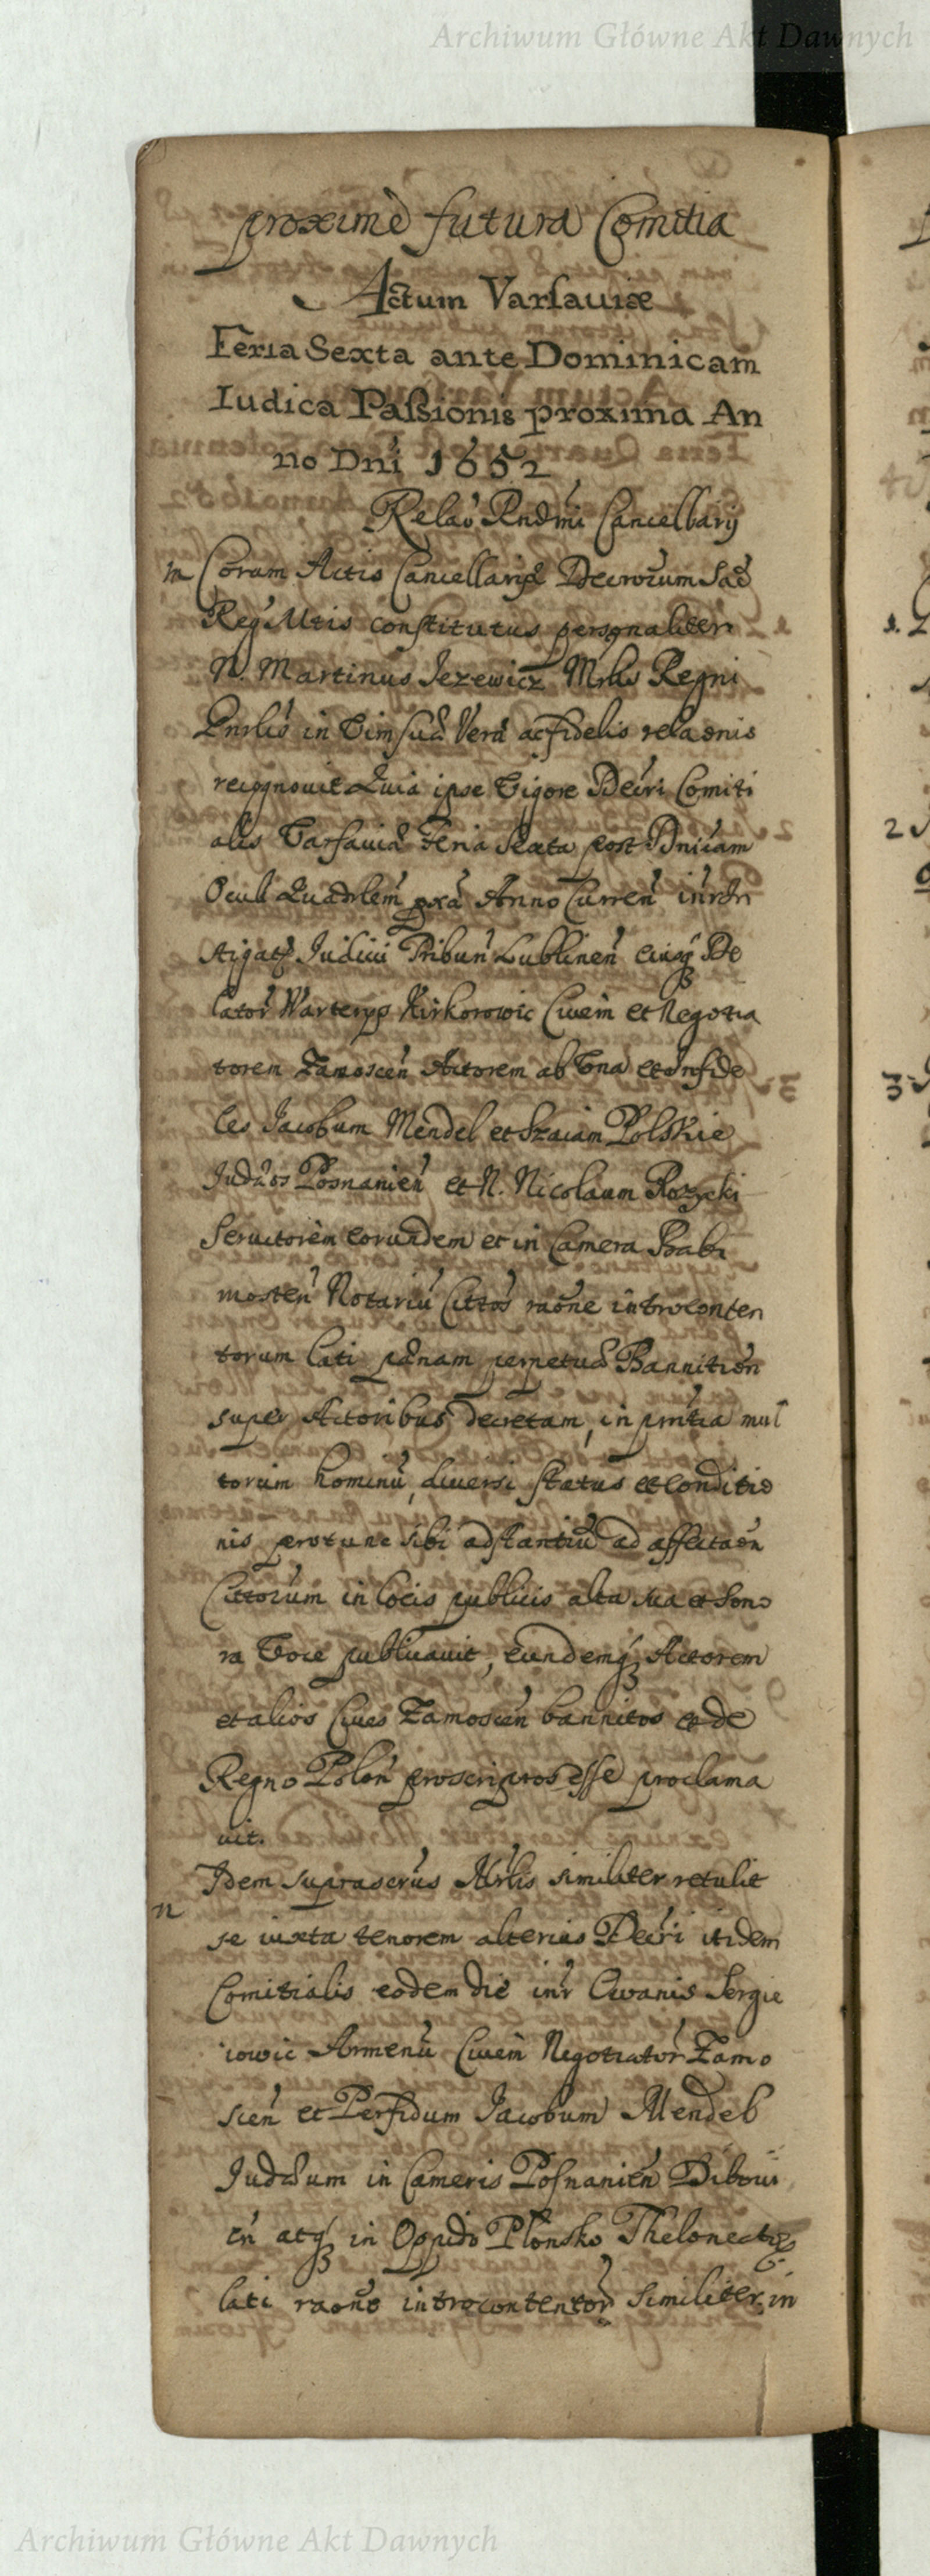 Archiwum Główne Akt Dawnych
proximè futura Comitia
Actum Varsauiæ
Feria Sexta ante Dominicam
Iudica Passionis proxima An
no Dni 1652
Relaō Rndmi Cancellarij
m Coram Actis Cancellariæ Decretorum Sac
Reg Mtis constitutus personaliter
N. Martinus Jezewicz Mrlis Regni
Gnrlis in Vim suæ Veræ ac fidelis relaōnis
recognouit Quia ipse Vigore Decri Comiti
alis Varsauiæ Feria Sexta post Dnicam
Oculi Quadrlem pxa Anno Curren inter
stigat Iudicii Tribun Lublinen eiusq De
lator Warteryz Kirkorowic Ciuem et Negotia
torem Zamoscen Actorem ab Vna et Infide
les Jacobum Mendel et Szaiam Polskie
Judæos Posnanien et N. Nicolaum Rozycki
Seruitorem eorundem et in Camera Babi
mosten Notariu Cittos raōne introconten
torum lati pænam perpetuæ Bannition
super Actoribus decretam, in pntia mul
torum hominu, diuersi status et conditio
nis protunc sibi adstantiu ad affectaōn
Cittorum in locis publicis alta sua et Sono
ra Voce publicauit, eundemq Actorem
et alios Ciues Zamoscen bannitos et de
Regno Polon proscriptos esse proclama
uit.
n Idem suprascrus Mrlis similiter retulit
se iuxta tenorem alterius Decri itidem
Comitialis eodem die intr Owanis Sergie
iowic Armenu Ciuem Negotiator Zamo
scen et Perfidum Jacobum Mendel
Judæum in Cameris Posnanien
en atq in Oppido Plonsko
lati raone introcontentor Similiter in
Archiwum Główne Akt Dawnych